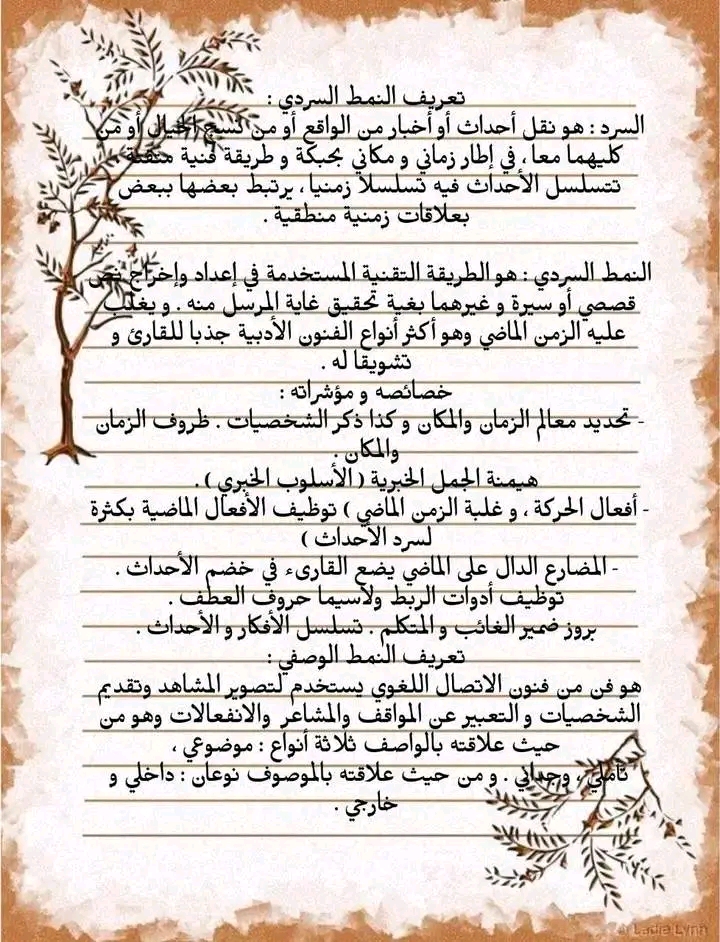 تعريف النمط السردي :
السرد : هو نقل أحداث أو أخبار من الواقع أو من نسج الخيال أو من
كليهما معا ، في إطار زماني و مكاني بحبكة و طريقة فنية متقنة .
تتسلسل الأحداث فيه تسلسلا زمنيا ، يرتبط بعضها ببعض
بعلاقات زمنية منطقية .
النمط السردي : هو الطريقة التقنية المستخدمة في إعداد وإخراج نص
قصصي أو سيرة و غيرهما بغية تحقيق غاية المرسل منه . و يغلب
عليه الزمن الماضي وهو أكثر أنواع الفنون الأدبية جذبا للقارئ و
تشويقا له .
خصائصه و مؤشراته :
- تحديد معالم الزمان والمكان و كذا ذكر الشخصيات . ظروف الزمان
والمكان .
هيمنة الجمل الخبرية ( الأسلوب الخبري ) .
- أفعال الحركة ، و غلبة الزمن الماضي ) توظيف الأفعال الماضية بكثرة
لسرد الأحداث )
- المضارع الدال على الماضي يضع القارىء في خضم الأحداث .
توظيف أدوات الربط ولاسيما حروف العطف .
بروز ضمير الغائب و المتكلم . تسلسل الأفكار و الأحداث .
تعريف النمط الوصفي :
هو فن من فنون الاتصال اللغوي يستخدم لتصوير المشاهد وتقديم
الشخصيات و التعبير عن المواقف والمشاعر والانفعالات وهو من
حيث علاقته بالواصف ثلاثة أنواع : موضوعي ،
- تأملي ، وجداني . و من حيث علاقته بالموصوف نوعان : داخلي و
خارجي .
Ladie Lynn